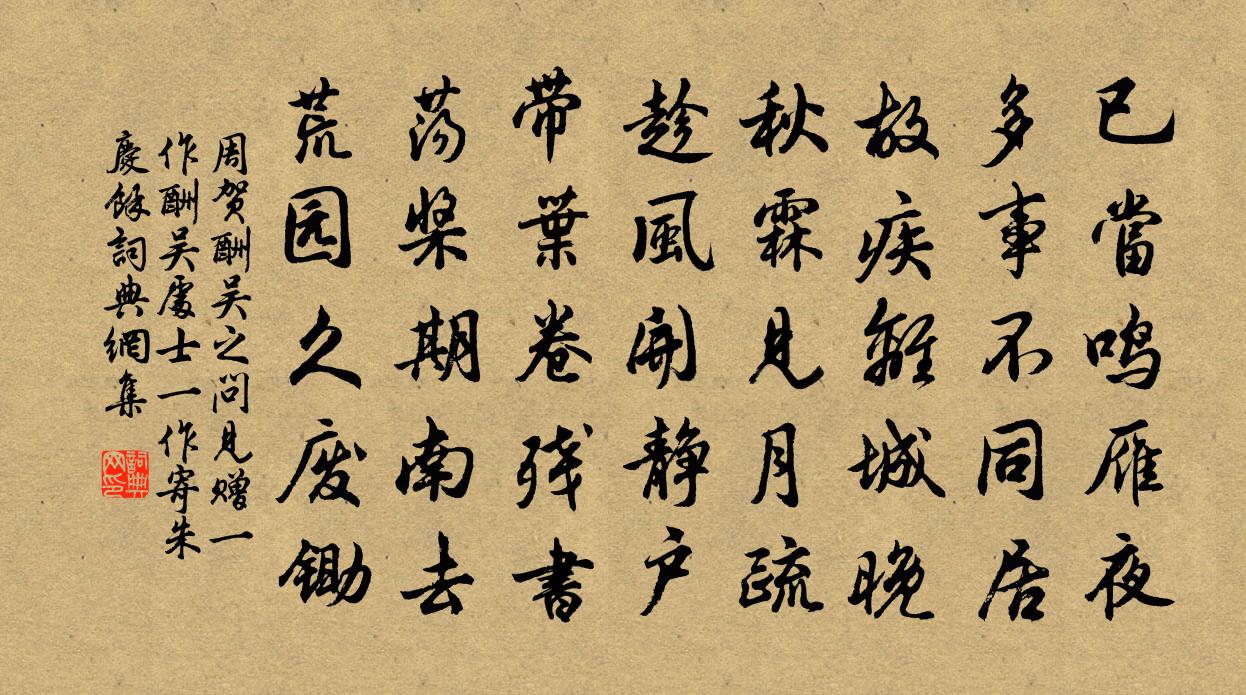 已當鸣雁夜
多事不同居
故疾離城晚
秋霖見月疏
趁風開静户
带葉卷残書
荡桨期南去
荒园久废锄
周贺酬吴之問見赠一
作酬吴處士一作寄朱
慶餘詞典網集
詞典网印